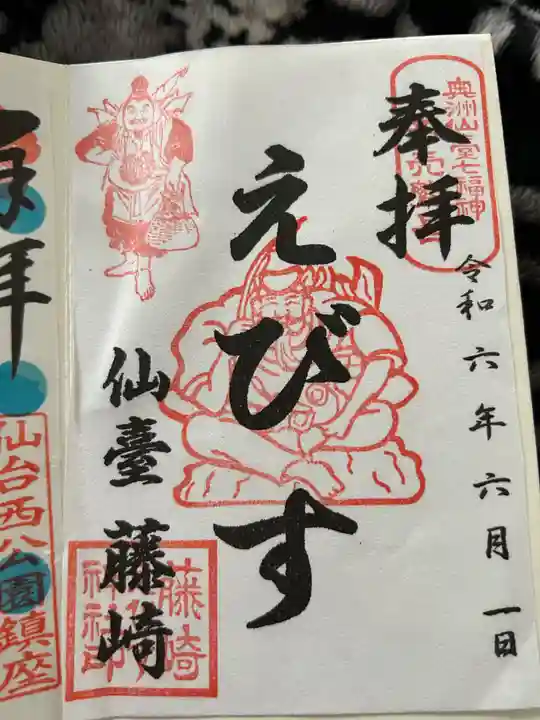 奉拝
奥州仙臺七福神
令和六年六月一日
えびす
仙臺 藤崎
藤崎
神社印
拝
仙台西公園鎮座